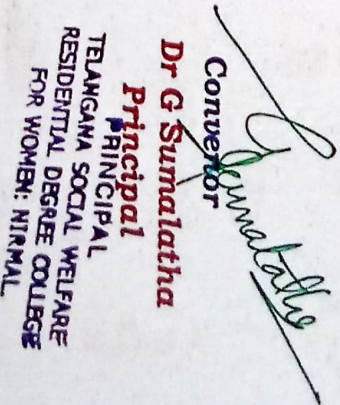 G Sumalatha
Convenor
Dr G Sumalatha
Principal
PRINCIPAL
TELANGANA SOCIAL WELFARE
RESIDENTIAL DEGREE COLLEGE
FOR WOMEN: NIRMAL